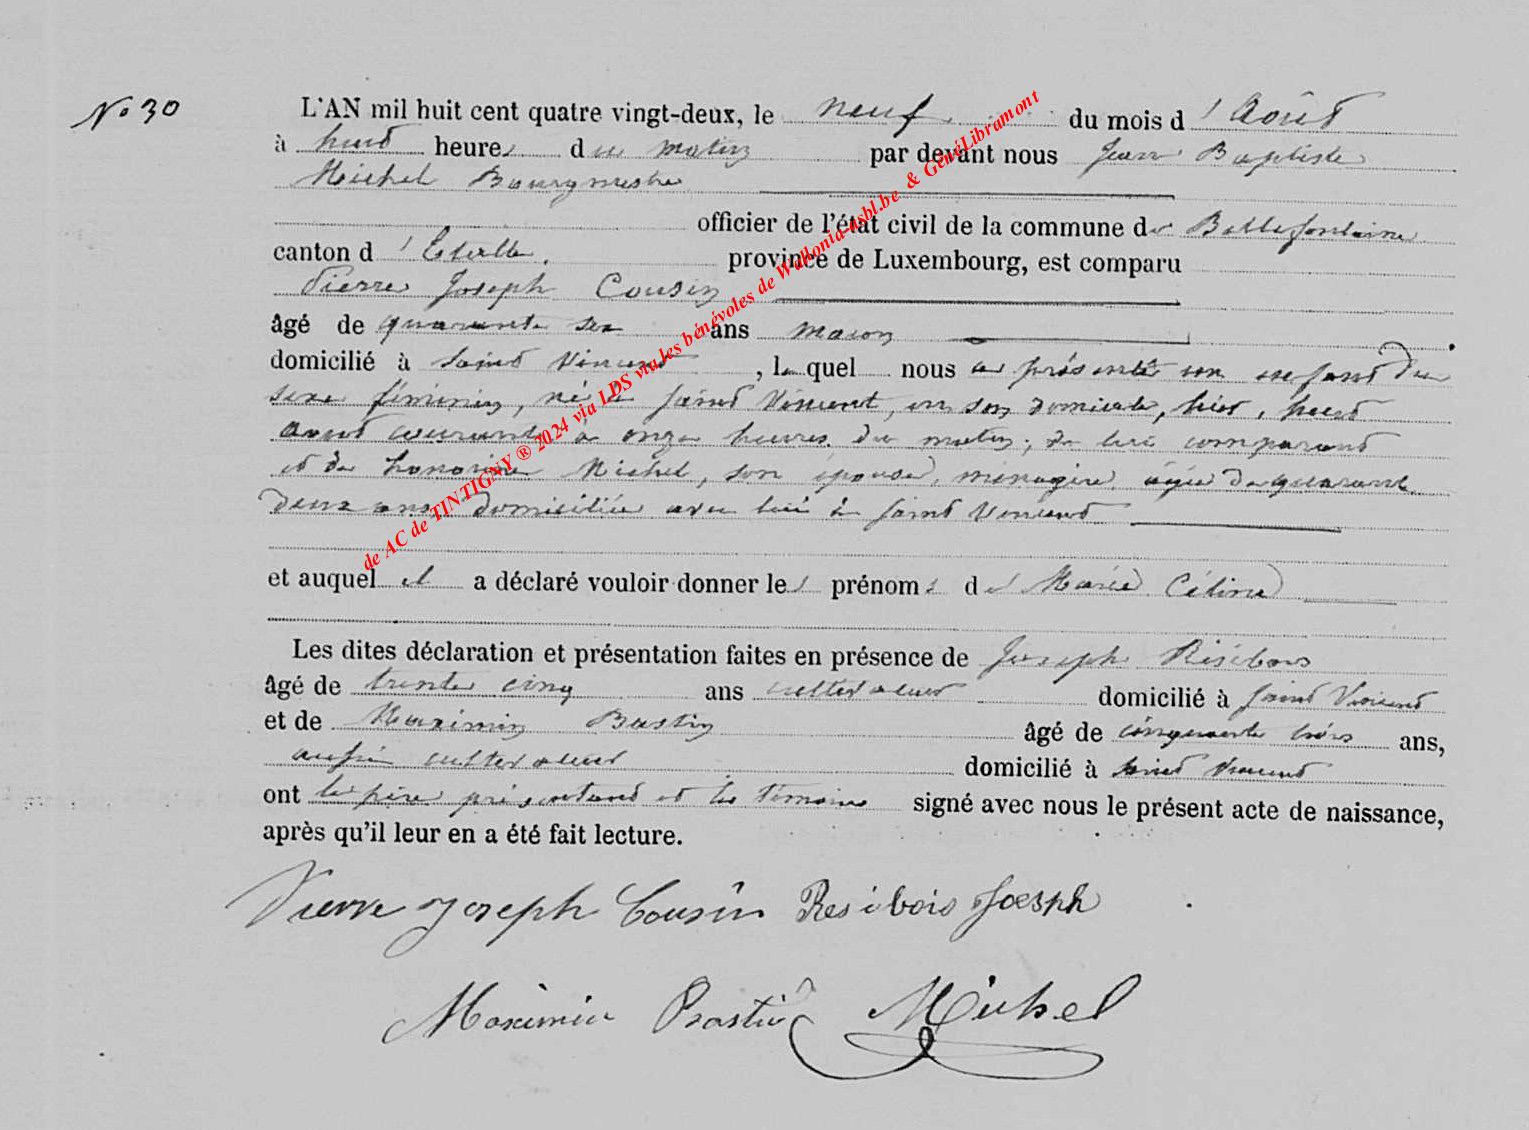 No 30
L'AN mil huit cent quatre vingt-deux, le neuf du mois d'Août
à huit heures du matin par devant nous Jean Baptiste
Michel Bourgmestre
officier de l'état civil de la commune de Bellefontaine
canton d'Etalle, province de Luxembourg, est comparu
Pierre Joseph Cousin
âgé de quarante six ans maçon
domicilié à Saint Vincent, lequel nous a présenté un enfant du
sexe féminin, né à Saint Vincent, en son domicile, hier, huit
aout courant à onze heures du matin, de lui comparant
et de Honorine Michel, son épouse, ménagère âgée de quarante
deux ans domiciliée avec lui à Saint Vincent
et auquel il a déclaré vouloir donner les prénoms de Marie Céline
Les dites déclaration et présentation faites en présence de Joseph Résibois
âgé de trente cinq ans cultivateur domicilié à Saint Vincent
et de Maximin Bastin âgé de cinquante trois ans,
aussi cultivateur domicilié à Saint Vincent
ont le père présentant et les témoins signé avec nous le présent acte de naissance,
après qu'il leur en a été fait lecture.
Pierre Joseph Cousin Resibois Joesph
Maximin Bastin Michel
de AC de TINTIGNY ® 2024 via LDS via les bénévoles de Wallonia-asbl.be & GénéLibramont